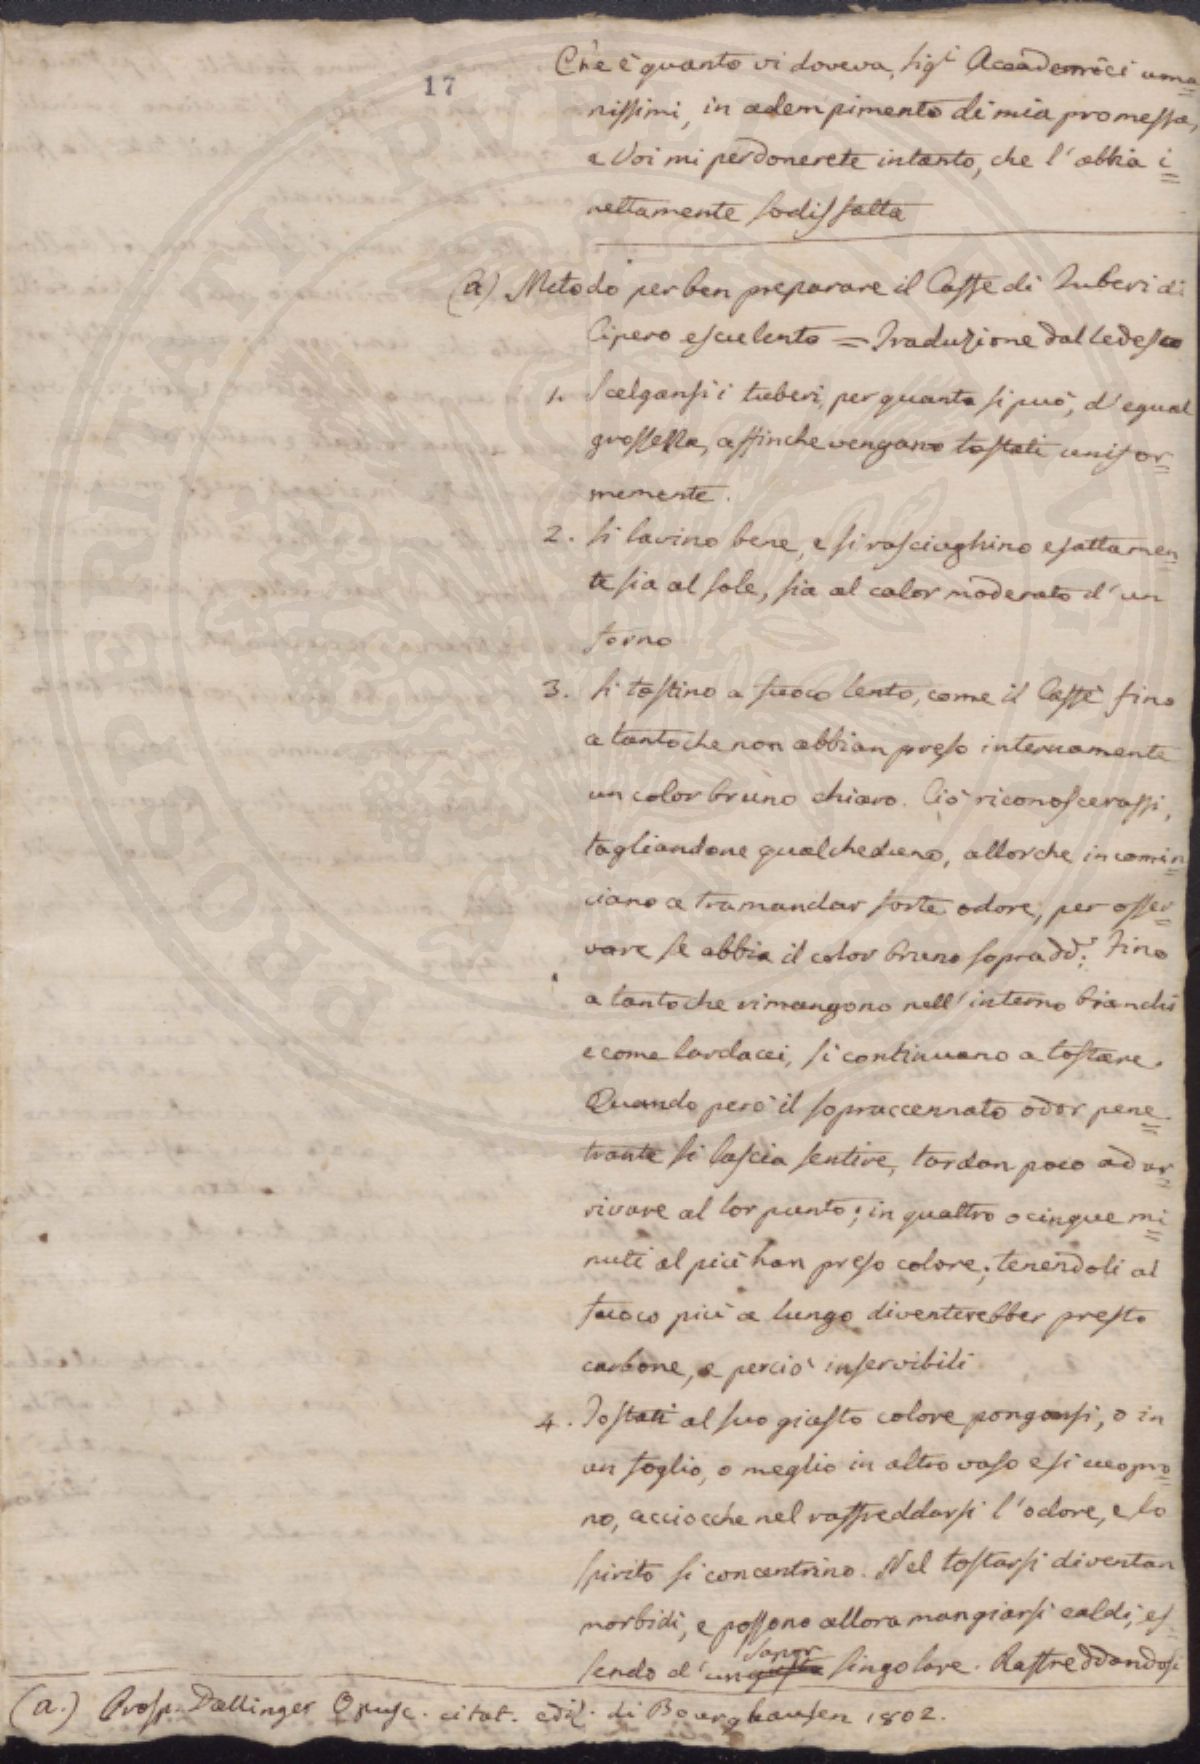 17
Che è quanto vi doveva, Sig.i Accademici uma=
nissimi, in adempimento di mia promessa,
e Voi mi perdonerete intanto, che l'abbia i=
nettamente sodisfatta
(a) Metodo per ben preparare il Caffe di Tuberi di
Cipero esculento = Traduzione dal tedesco
1. Scelgansi i tuberi, per quanto si può, d'egual
grossezza, affinche vengano tostati unifor=
memente.
2. Si lavino bene, e si rasciughino esattamen=
te sia al sole, sia al calor moderato d'un
forno
3. Si tostino a fuoco lento, come il Caffè fino
a tantoche non abbian preso internamente
un color bruno chiaro. Ciò riconoscerassi,
tagliandone qualcheduno, allorche incomin=
ciano a tramandar forte odore, per osser=
vare se abbia il color bruno sopradd.º Fino
a tantoche rimangono nell'interno bianchi
e come lardacei, si continuano a tostare.
Quando però il sopraccennato odor pene=
trante si lascia sentire, tardan poco ad ar=
rivare al lor punto; in quattro o cinque mi=
nuti al più han preso colore; tenendoli al
fuoco più a lungo diventerebber presto
carbone, e perciò inservibili
4. Tostati al suo giusto colore pongonsi, o in
un foglio, o meglio in altro vaso e si cuopro=
no, acciocche nel raffreddarsi l'odore, e lo
spirito si concentrino. Nel tostarsi diventan
morbidi, e possono allora mangiarsi caldi, es=
sendo d'un sapor singolare. Raffreddandosi
(a.) Prosp. Dallinger Opusc. citat. ediz. di Bourghausen 1802.